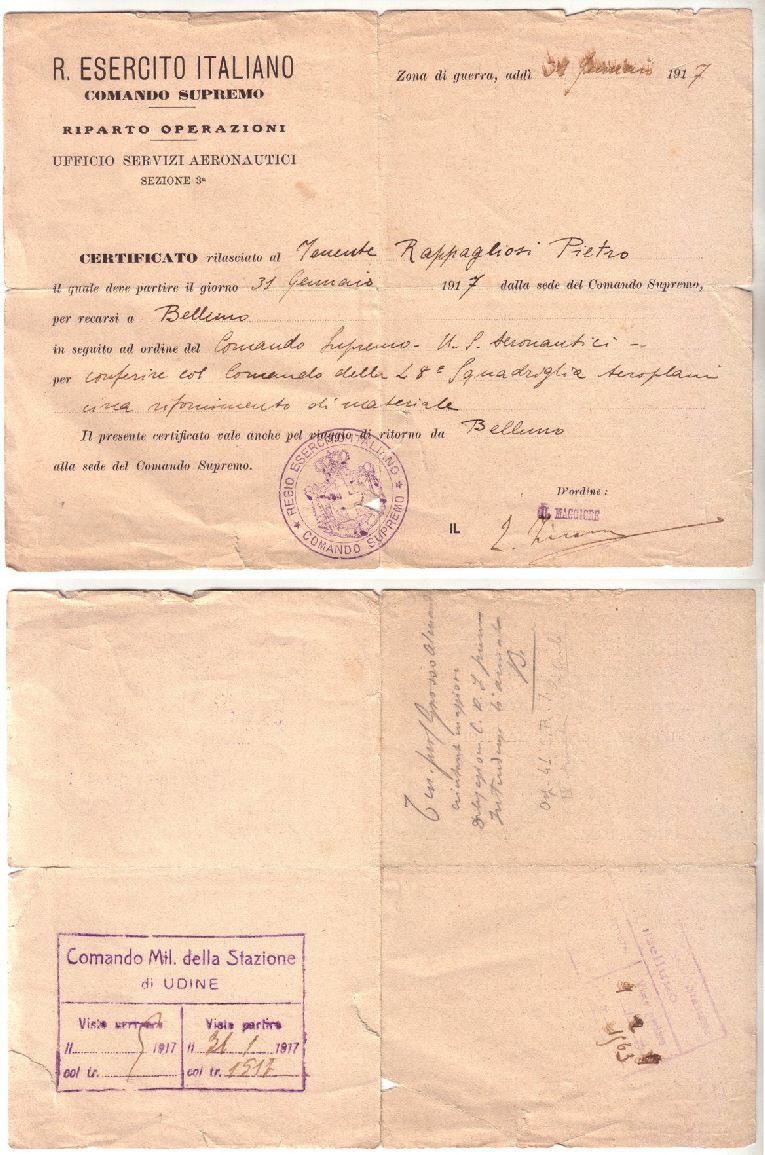 R. ESERCITO ITALIANO
COMANDO SUPREMO
RIPARTO OPERAZIONI
UFFICIO SERVIZI AERONAUTICI
SEZIONE 3ª
Zona di guerra, addì 31 Gennaio 1917
CERTIFICATO rilasciato al Tenente Rappagliosi Pietro
il quale deve partire il giorno 31 Gennaio 1917 dalla sede del Comando Supremo,
per recarsi a Belluno
in seguito ad ordine del Comando Supremo - U. S. Aeronautici -
per conferire col Comando della 48ª Squadriglia Aeroplani
circa rifornimento di materiale
Il presente certificato vale anche pel viaggio di ritorno da Belluno
alla sede del Comando Supremo.
REGIO ESERCITO ITALIANO
COMANDO SUPREMO
D'ordine:
IL MAGGIORE
IL
Ten. prof
Comando Mil. della Stazione
di UDINE
Visto arrivare
Visto partire
il 1917
il 31 1 1917
col tr.
col tr. 1517